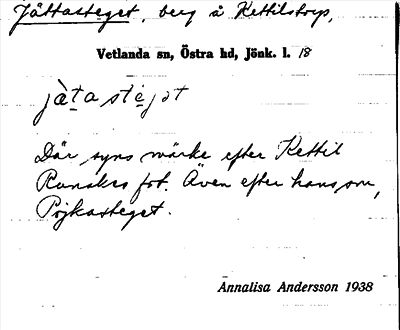 Jättasteget, berg å Kettilstorp,
Vetlanda sn, Östra hd, Jönk. l. 18
jàtastejət
Där syns märke efter Kettil
Runskes fot. Även efter hans son,
Pojkasteget.
Annalisa Andersson 1938